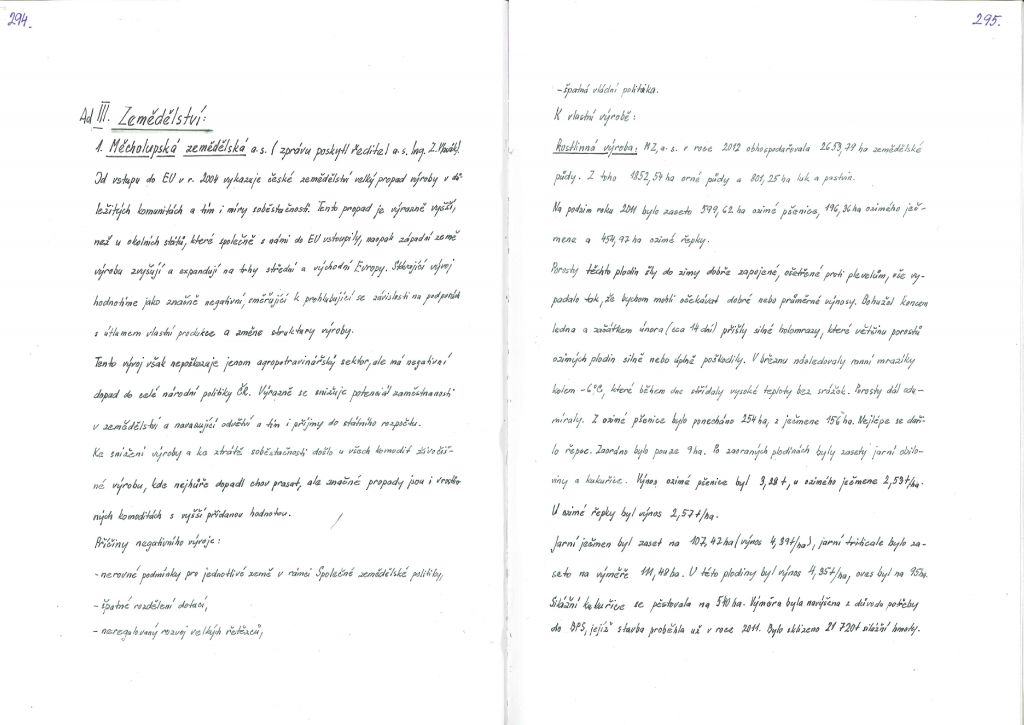 294.
Ad III. Zemědělství:
1. Měcholupská zemědělská a.s. (zprávu poskytl ředitel a.s. Ing. Z.
Od vstupu do EU v r. 2004 vykazuje české zemědělství velký propad výroby v dů-
ležitých komunitách a tím i míry soběstačnosti. Tento propad je výrazně vyšší,
než u okolních států, které společně s námi do EU vstoupily, naopak západní země
výrobu zvyšují a expandují na trhy střední a východní Evropy. Stávající vývoj
hodnotíme jako značně negativní, směřující k prohlubující se závislosti na podporách
s útlumem vlastní produkce a změne struktury výroby.
Tento vývoj však nepoškozuje jenom agropotravinářský sektor, ale má negativní
dopad do celé národní politiky ČR. Výrazně se snižuje potenciál zaměstnanosti
v zemědělství a navazující odvětví a tím i příjmy do státního rozpočtu.
Ke snížení výroby a ke ztrátě soběstačnosti došlo u všech komodit živočiš-
né výrobu, kde nejhůře dopadl chov prasat, ale značné propady jsou i v rostlin-
ných komoditách s vyšší přidanou hodnotou.
Příčiny negativního vývoje:
- nerovné podmínky pro jednotlivé země v rámci Společné zemědělské politiky,
- špatné rozdělení dotací,
- neregulovaný rozvoj velkých řetězců,
295.
- špatná vládní politika.
K vlastní výrobě:
Rostlinná výroba: MZ, a.s. v roce 2012 obhospodařovala 2653,79 ha zemědělské
půdy. Z toho 1852,54 ha orné půdy a 801,25 ha luk a pastvin.
Na podzim roku 2011 bylo zaseto 579,62 ha ozimé pšenice, 196,36 ha ozimého ječ-
mene a 454,97 ha ozimé řepky.
Porosty těchto plodin šly do zimy dobře zapojené, ošetřené proti plevelům, vše vy-
padalo tak, že bychom mohli očekávat dobré nebo průměrné výnosy. Bohužel koncem
ledna a začátkem února (cca 14 dní) přišly silné holomrazy, které většinu porostů
ozimých plodin silně nebo úplně poškodily. V březnu následovaly ranní mrazíky
kolem -6°C, které během dne střídaly vysoké teploty bez srážek. Porosty dál odu-
míraly. Z ozimé pšenice bylo ponecháno 254 ha, z ječmene 156 ha. Nejlépe se daři-
lo řepce. Zaoráno bylo pouze 9 ha. Po zaoraných plodinách byly zasety jarní obilo-
viny a kukuřice. Výnos ozimé pšenice byl 3,28 t, u ozimého ječmene 2,53 t/ha.
U ozimé řepky byl výnos 2,57 t/ha.
Jarní ječmen byl zaset na 107,47 ha (výnos 4,39 t/ha), jarní triticale bylo za-
seto na výměře 111,48 ha. U této plodiny byl výnos 4,35 t/ha, oves byl na 95 ha.
Silážní kukuřice se pěstovala na 540 ha. Výměra byla navýšena z důvodu potřeby
do BPS, jejíž stavba proběhla už v roce 2011. Bylo sklizeno 21 720 t silážní hmoty.